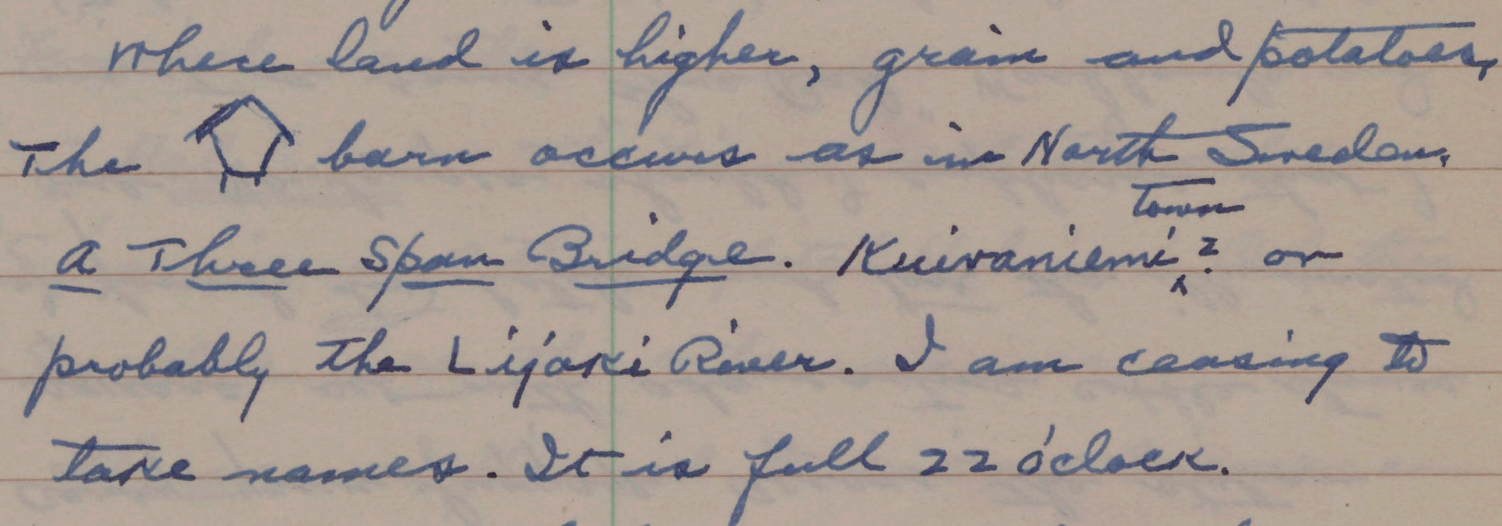 where land is higher, grain and potatoes,
The barn occurs as in North Sweden.
town
A Three Span Bridge. Kuivaniemi ? or
probably the Lijoki River. I am ceasing to
take names. It is full 22 o'clock.